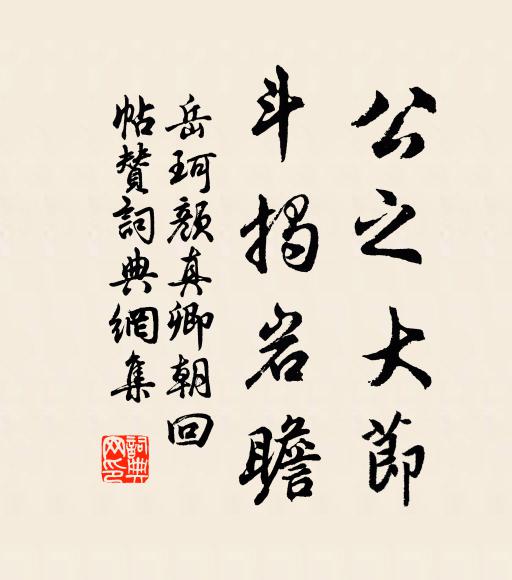 公之大節
斗揭岩瞻
岳珂顏真卿朝回
帖贊詞典網集
詞典网印